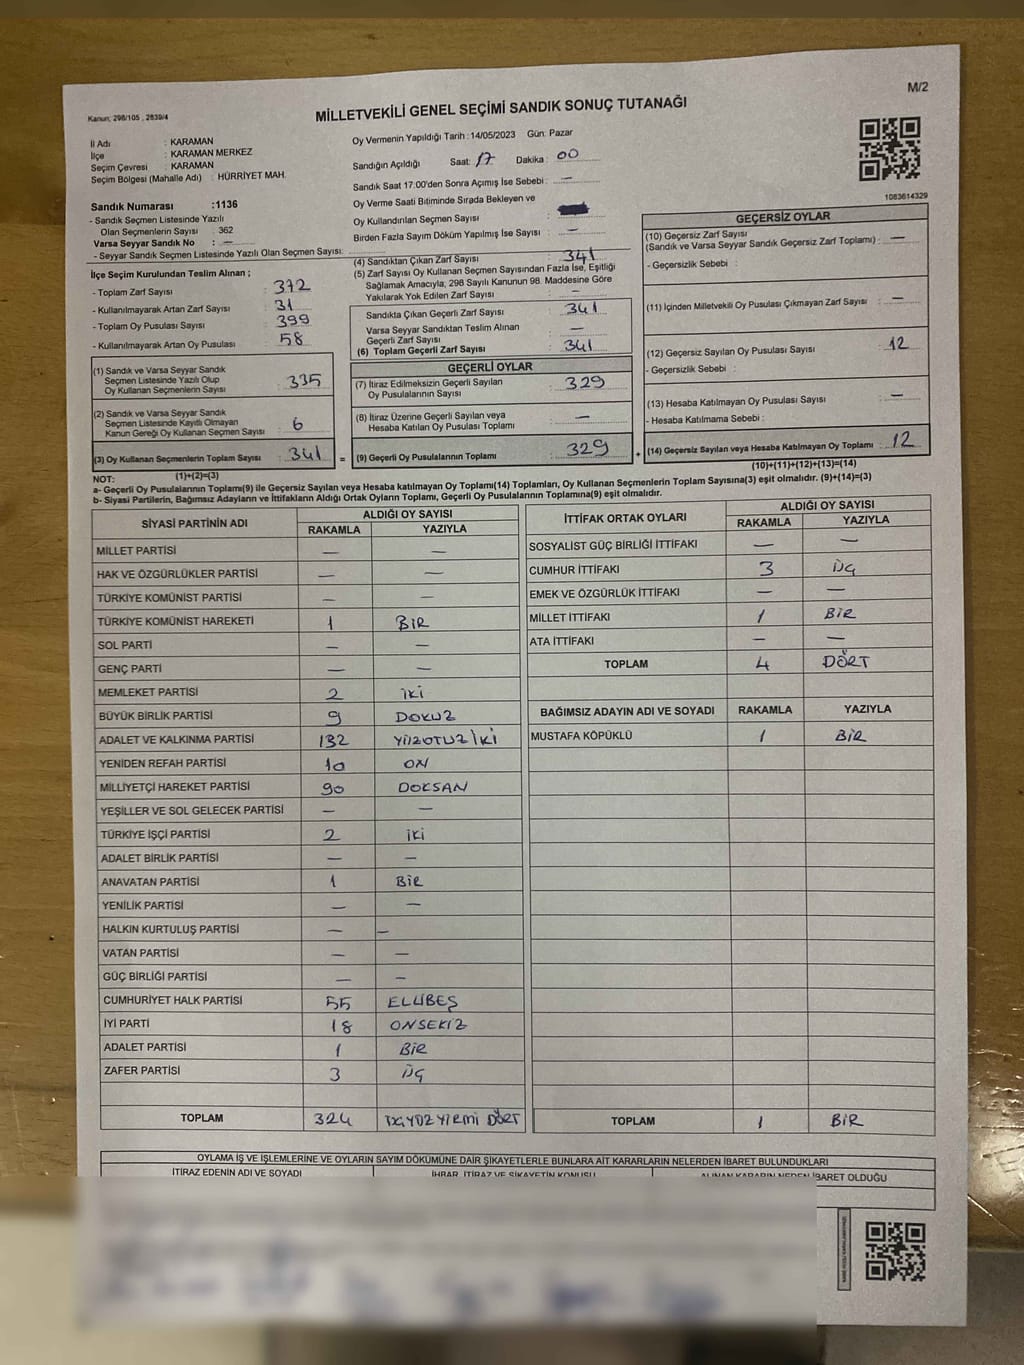 M/2
Kanun; 298/105 , 2839/4
MİLLETVEKİLİ GENEL SEÇİMİ SANDIK SONUÇ TUTANAĞI
İl Adı : KARAMAN
İlçe : KARAMAN MERKEZ
Seçim Çevresi : KARAMAN
Seçim Bölgesi (Mahalle Adı) : HÜRRİYET MAH.
Sandık Numarası :1136
- Sandık Seçmen Listesinde Yazılı
Olan Seçmenlerin Sayısı : 362
Varsa Seyyar Sandık No : —
- Seyyar Sandık Seçmen Listesinde Yazılı Olan Seçmen Sayısı:
Oy Vermenin Yapıldığı Tarih : 14/05/2023 Gün: Pazar
Sandığın Açıldığı Saat: 17 Dakika : 00
Sandık Saat 17:00'den Sonra Açımış İse Sebebi : —
Oy Verme Saati Bitiminde Sırada Bekleyen ve
Oy Kullandırılan Seçmen Sayısı :
Birden Fazla Sayım Döküm Yapılmış İse Sayısı : —
1083614329
İlçe Seçim Kurulundan Teslim Alınan ;
- Toplam Zarf Sayısı : 372
- Kullanılmayarak Artan Zarf Sayısı : 31
- Toplam Oy Pusulası Sayısı : 399
- Kullanılmayarak Artan Oy Pusulası : 58
(1) Sandık ve Varsa Seyyar Sandık
Seçmen Listesinde Yazılı Olup
Oy Kullanan Seçmenlerin Sayısı : 335
(2) Sandık ve Varsa Seyyar Sandık
Seçmen Listesinde Kayıtlı Olmayan
Kanun Gereği Oy Kullanan Seçmen Sayısı : 6
(3) Oy Kullanan Seçmenlerin Toplam Sayısı : 341 =
(4) Sandıktan Çıkan Zarf Sayısı : 341
(5) Zarf Sayısı Oy Kullanan Seçmen Sayısından Fazla İse, Eşitliği
Sağlamak Amacıyla, 298 Sayılı Kanunun 98. Maddesine Göre
Yakılarak Yok Edilen Zarf Sayısı : —
Sandıkta Çıkan Geçerli Zarf Sayısı : 341
Varsa Seyyar Sandıktan Teslim Alınan
Geçerli Zarf Sayısı : —
(6) Toplam Geçerli Zarf Sayısı : 341
GEÇERLİ OYLAR
(7) İtiraz Edilmeksizin Geçerli Sayılan
Oy Pusulalarının Sayısı : 329
(8) İtiraz Üzerine Geçerli Sayılan veya
Hesaba Katılan Oy Pusulası Toplamı : —
(9) Geçerli Oy Pusulalarının Toplamı : 329 +
GEÇERSİZ OYLAR
(10) Geçersiz Zarf Sayısı
(Sandık ve Varsa Seyyar Sandık Geçersiz Zarf Toplamı) : —
- Geçersizlik Sebebi :
(11) İçinden Milletvekili Oy Pusulası Çıkmayan Zarf Sayısı : —
(12) Geçersiz Sayılan Oy Pusulası Sayısı : 12
- Geçersizlik Sebebi :
(13) Hesaba Katılmayan Oy Pusulası Sayısı : —
- Hesaba Katılmama Sebebi :
(14) Geçersiz Sayılan veya Hesaba Katılmayan Oy Toplamı : 12
NOT: (1)+(2)=(3)
(10)+(11)+(12)+(13)=(14)
a- Geçerli Oy Pusulalarının Toplamı(9) ile Geçersiz Sayılan veya Hesaba katılmayan Oy Toplamı(14) Toplamları, Oy Kullanan Seçmenlerin Toplam Sayısına(3) eşit olmalıdır. (9)+(14)=(3)
b- Siyasi Partilerin, Bağımsız Adayların ve İttifakların Aldığı Ortak Oyların Toplamı, Geçerli Oy Pusulalarının Toplamına(9) eşit olmalıdır.
SİYASİ PARTİNİN ADI ALDIĞI OY SAYISI
RAKAMLA YAZIYLA
MİLLET PARTİSİ — —
HAK VE ÖZGÜRLÜKLER PARTİSİ — —
TÜRKİYE KOMÜNİST PARTİSİ — —
TÜRKİYE KOMÜNİST HAREKETİ 1 BİR
SOL PARTİ — —
GENÇ PARTİ — —
MEMLEKET PARTİSİ 2 İKİ
BÜYÜK BİRLİK PARTİSİ 9 DOKUZ
ADALET VE KALKINMA PARTİSİ 132 YÜZOTUZ İKİ
YENİDEN REFAH PARTİSİ 10 ON
MİLLİYETÇİ HAREKET PARTİSİ 90 DOKSAN
YEŞİLLER VE SOL GELECEK PARTİSİ — —
TÜRKİYE İŞÇİ PARTİSİ 2 İKİ
ADALET BİRLİK PARTİSİ — —
ANAVATAN PARTİSİ 1 BİR
YENİLİK PARTİSİ — —
HALKIN KURTULUŞ PARTİSİ — —
VATAN PARTİSİ — —
GÜÇ BİRLİĞİ PARTİSİ — —
CUMHURİYET HALK PARTİSİ 55 ELLİBEŞ
İYİ PARTİ 18 ONSEKİZ
ADALET PARTİSİ 1 BİR
ZAFER PARTİSİ 3 ÜÇ
TOPLAM 324 YİRMİ DÖRT
İTTİFAK ORTAK OYLARI ALDIĞI OY SAYISI
RAKAMLA YAZIYLA
SOSYALİST GÜÇ BİRLİĞİ İTTİFAKI — —
CUMHUR İTTİFAKI 3 ÜÇ
EMEK VE ÖZGÜRLÜK İTTİFAKI — —
MİLLET İTTİFAKI 1 BİR
ATA İTTİFAKI — —
TOPLAM 4 DÖRT
BAĞIMSIZ ADAYIN ADI VE SOYADI RAKAMLA YAZIYLA
MUSTAFA KÖPÜKLÜ 1 BİR
TOPLAM 1 BİR
OYLAMA İŞ VE İŞLEMLERİNE VE OYLARIN SAYIM DÖKÜMÜNE DAİR ŞİKAYETLERLE BUNLARA AİT KARARLARIN NELERDEN İBARET BULUNDUKLARI
İTİRAZ EDENİN ADI VE SOYADI İHBAR, İTİRAZ VE ŞİKAYETİN KONUSU ALINAN KARARIN NEDEN İBARET OLDUĞU